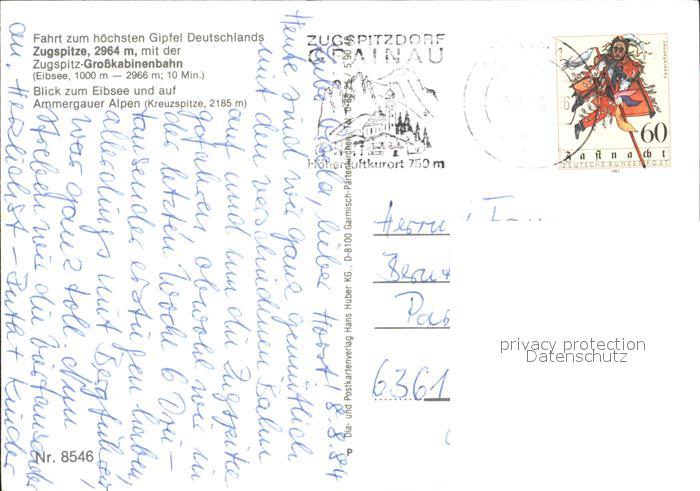 Fahrt zum höchsten Gipfel Deutschlands
Zugspitze, 2964 m, mit der
Zugspitz-Großkabinenbahn
(Eibsee, 1000 m — 2966 m; 10 Min.)
Blick zum Eibsee und auf
Ammergauer Alpen (Kreuzspitze, 2185 m)
ZUGSPITZDORF
GRAINAU
Höhenluftkurort 750 m
60
Fastnacht
DEUTSCHE BUNDESPOST
8.8.84
lieber Horst!
Heute sind wir ganz gemütlich
mit der verschiedenen Bahn
auf und um die Zugspitze
gefahren, obwohl wir in
der letzten Woche 6 Drei-
tausender erstiegen haben,
allerdings mit Bergführer,
war ganz toll. Nun
streben wir die
an. Herzlichst - + Kinder
Herrn
6361
Dia- und Postkartenverlag Hans Huber KG., D-8100 Garmisch-Partenkirchen
P
Nr. 8546
privacy protection
Datenschutz